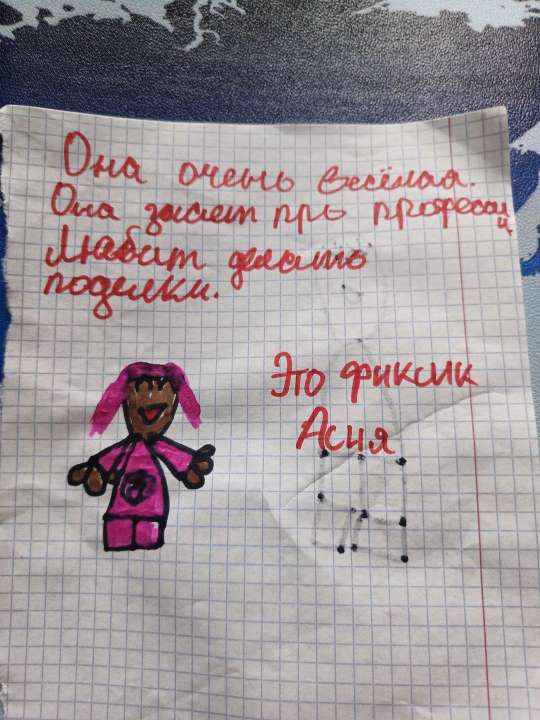 Она очень весёлая.
Она знает про професии
Любит делать
поделки.
Это фиксик
Асня